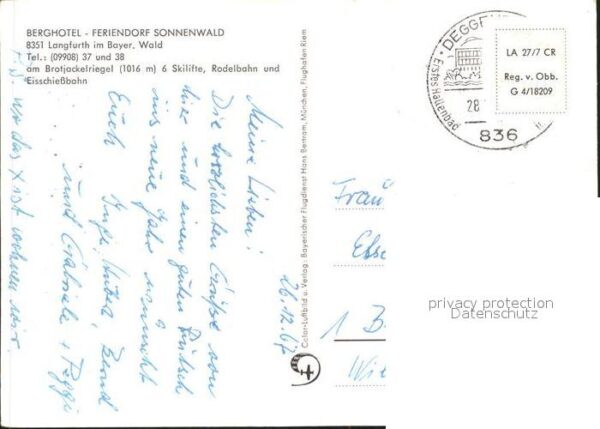 BERGHOTEL - FERIENDORF SONNENWALD
8351 Langfurth im Bayer. Wald
Tel.: (09908) 37 und 38
am Brotjackelriegel (1016 m) 6 Skilifte, Rodelbahn und
Eisschießbahn
26.12.67
Meine Lieben!
Die herzlichsten Grüße von
hier und einen guten Rutsch
ins neue Jahr wünscht
Euch Inge, Hubert, Bernd
und Gabriele + Peggi
wo das X ist wohnen wir.
Color-Luftbild u. Verlag: Bayerischer Flugdienst Hans Bertram, München, Flughafen Riem
DEGGEN
Erstes Hallenbad
28
836
LA 27/7 CR
Reg. v. Obb.
G 4/18209
Frau
1 B
privacy protection
Datenschutz